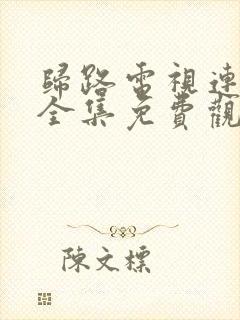 歸路電視連
全集免費觀
陳文標